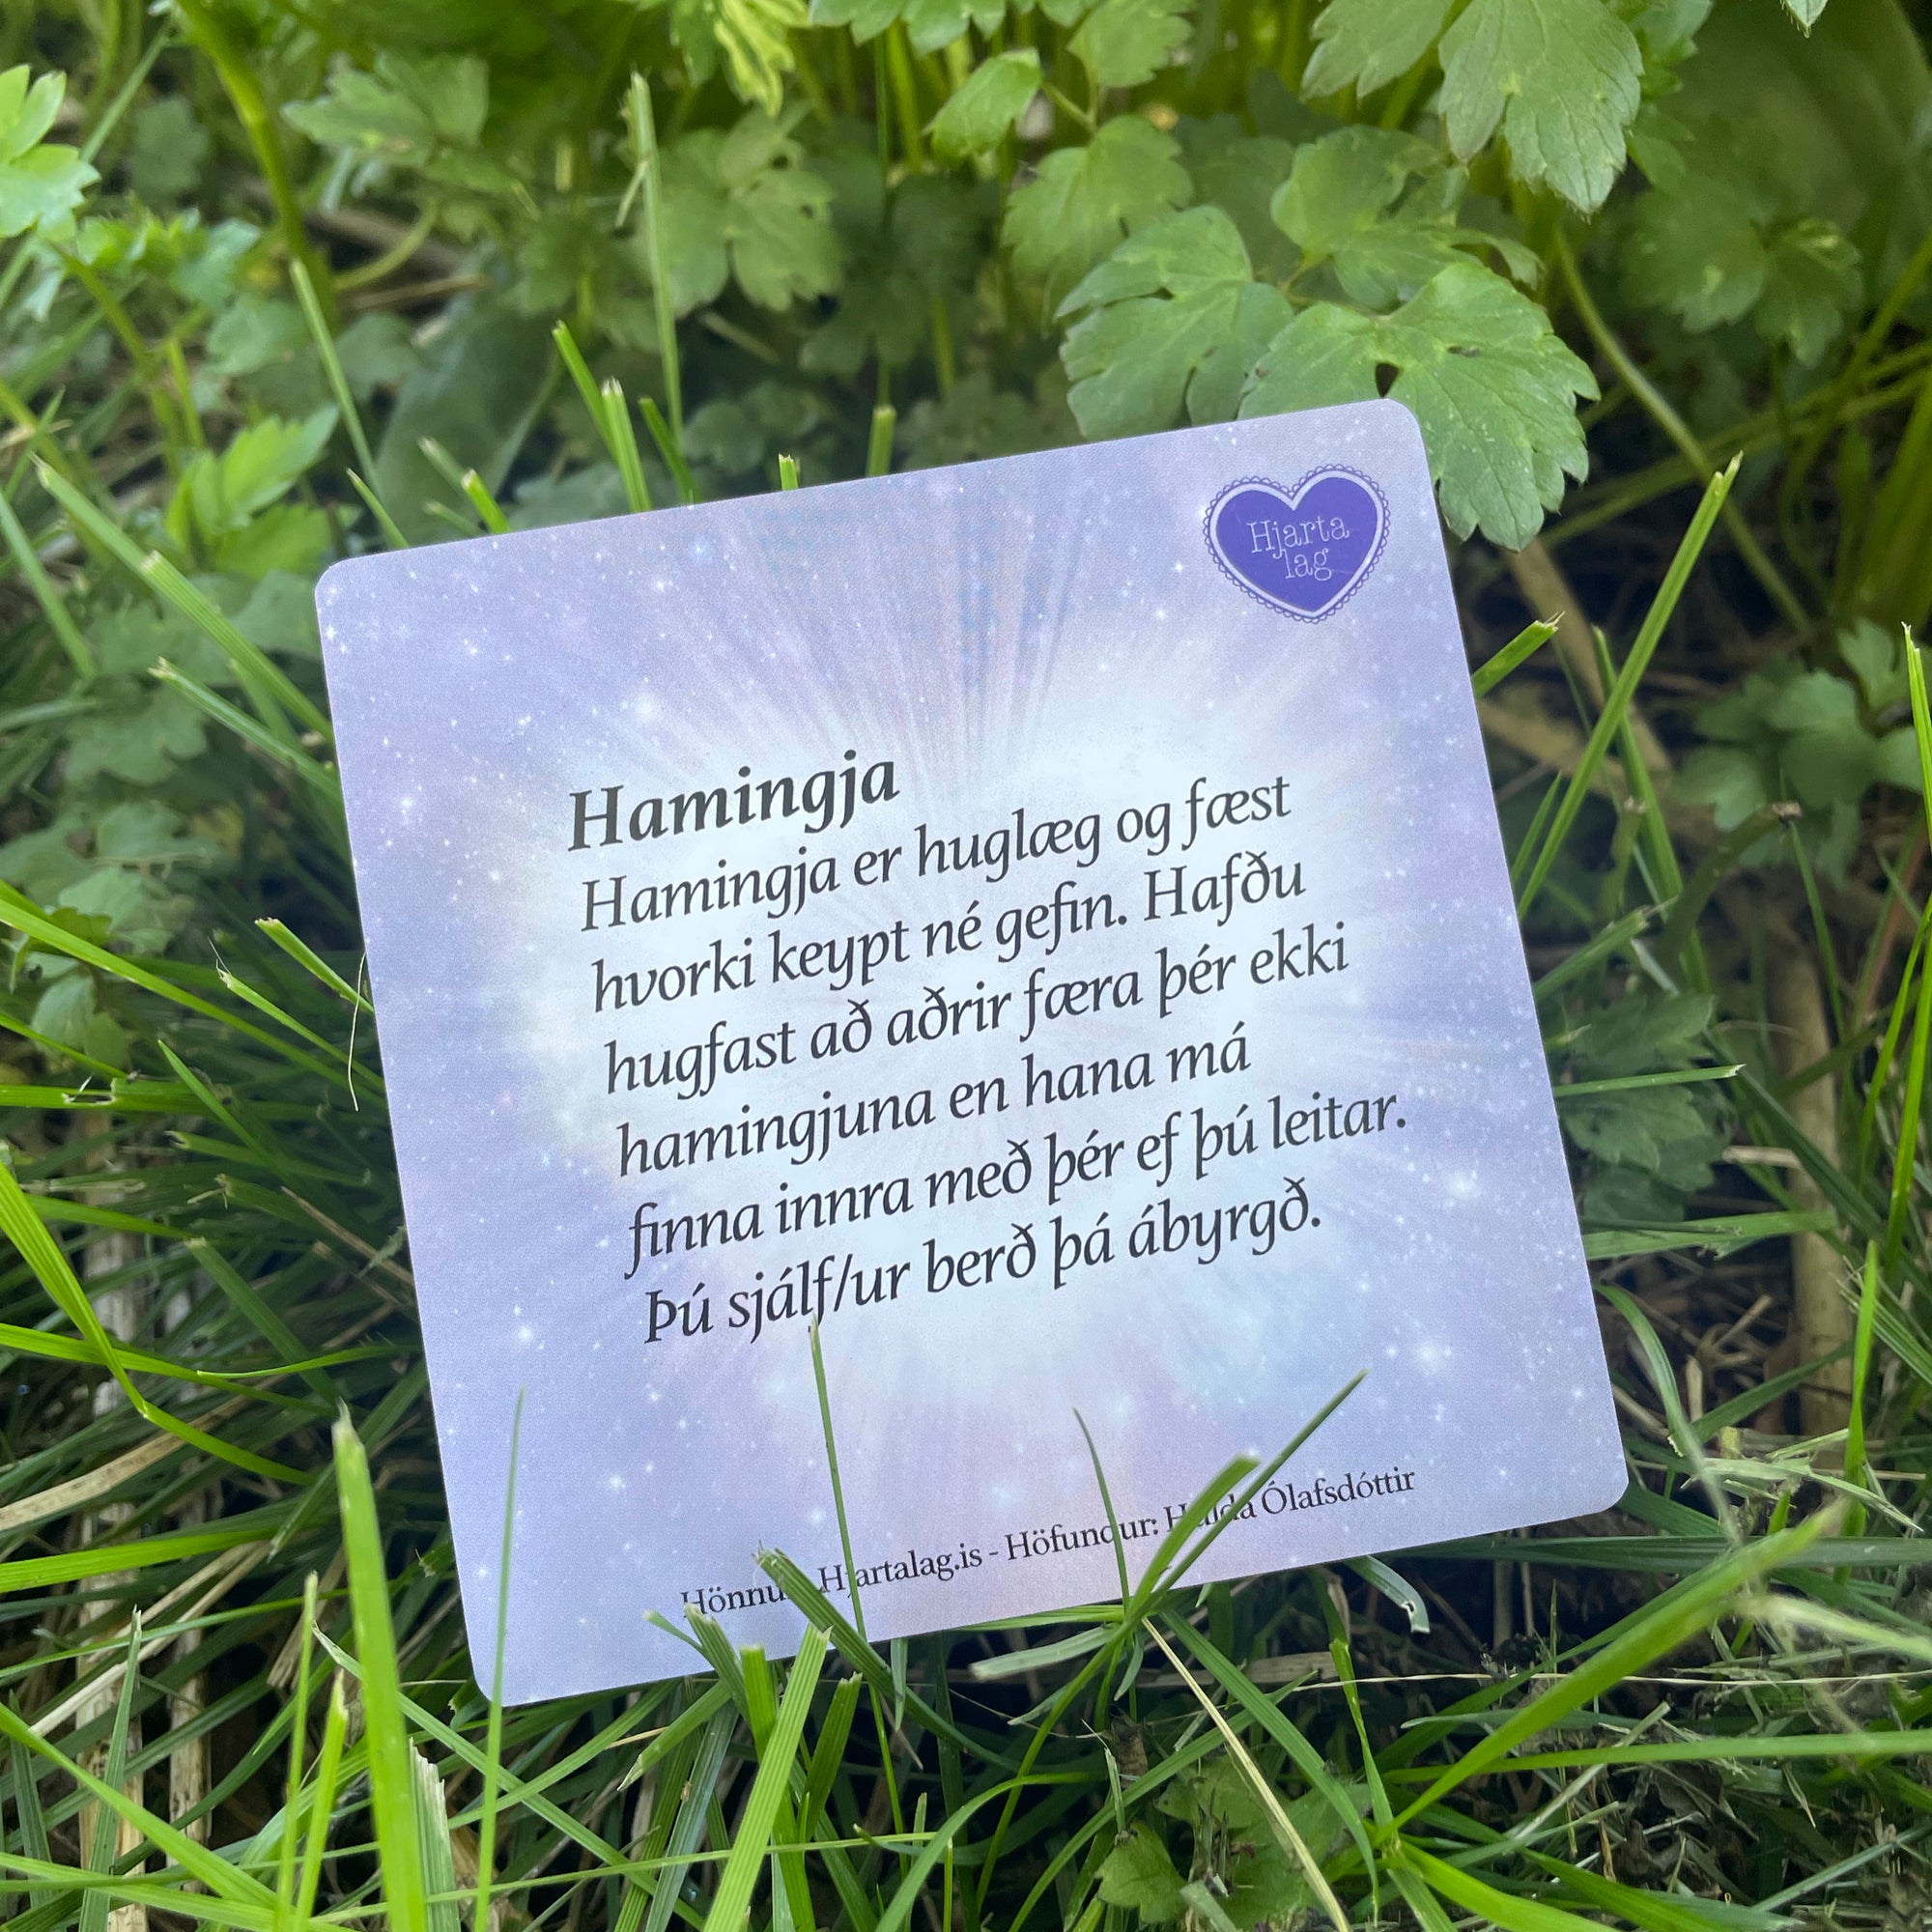 Hjarta
lag
Hamingja
Hamingja er huglæg og fæst
hvorki keypt né gefin. Hafðu
hugfast að aðrir færa þér ekki
hamingjuna en hana má
finna innra með þér ef þú leitar.
Þú sjálf/ur berð þá ábyrgð.
Hjartalag.is - Höfundur: Ólafsdóttir